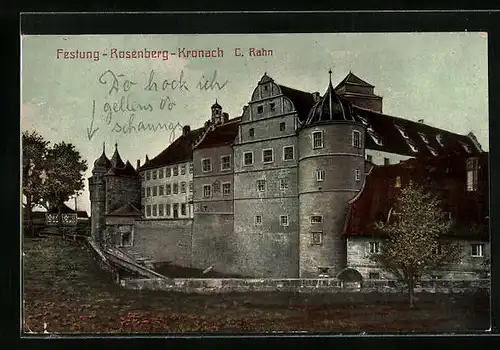 Festung-Rosenberg-Kronach C. Rahn
Do hock ich
gellens do
schaungs